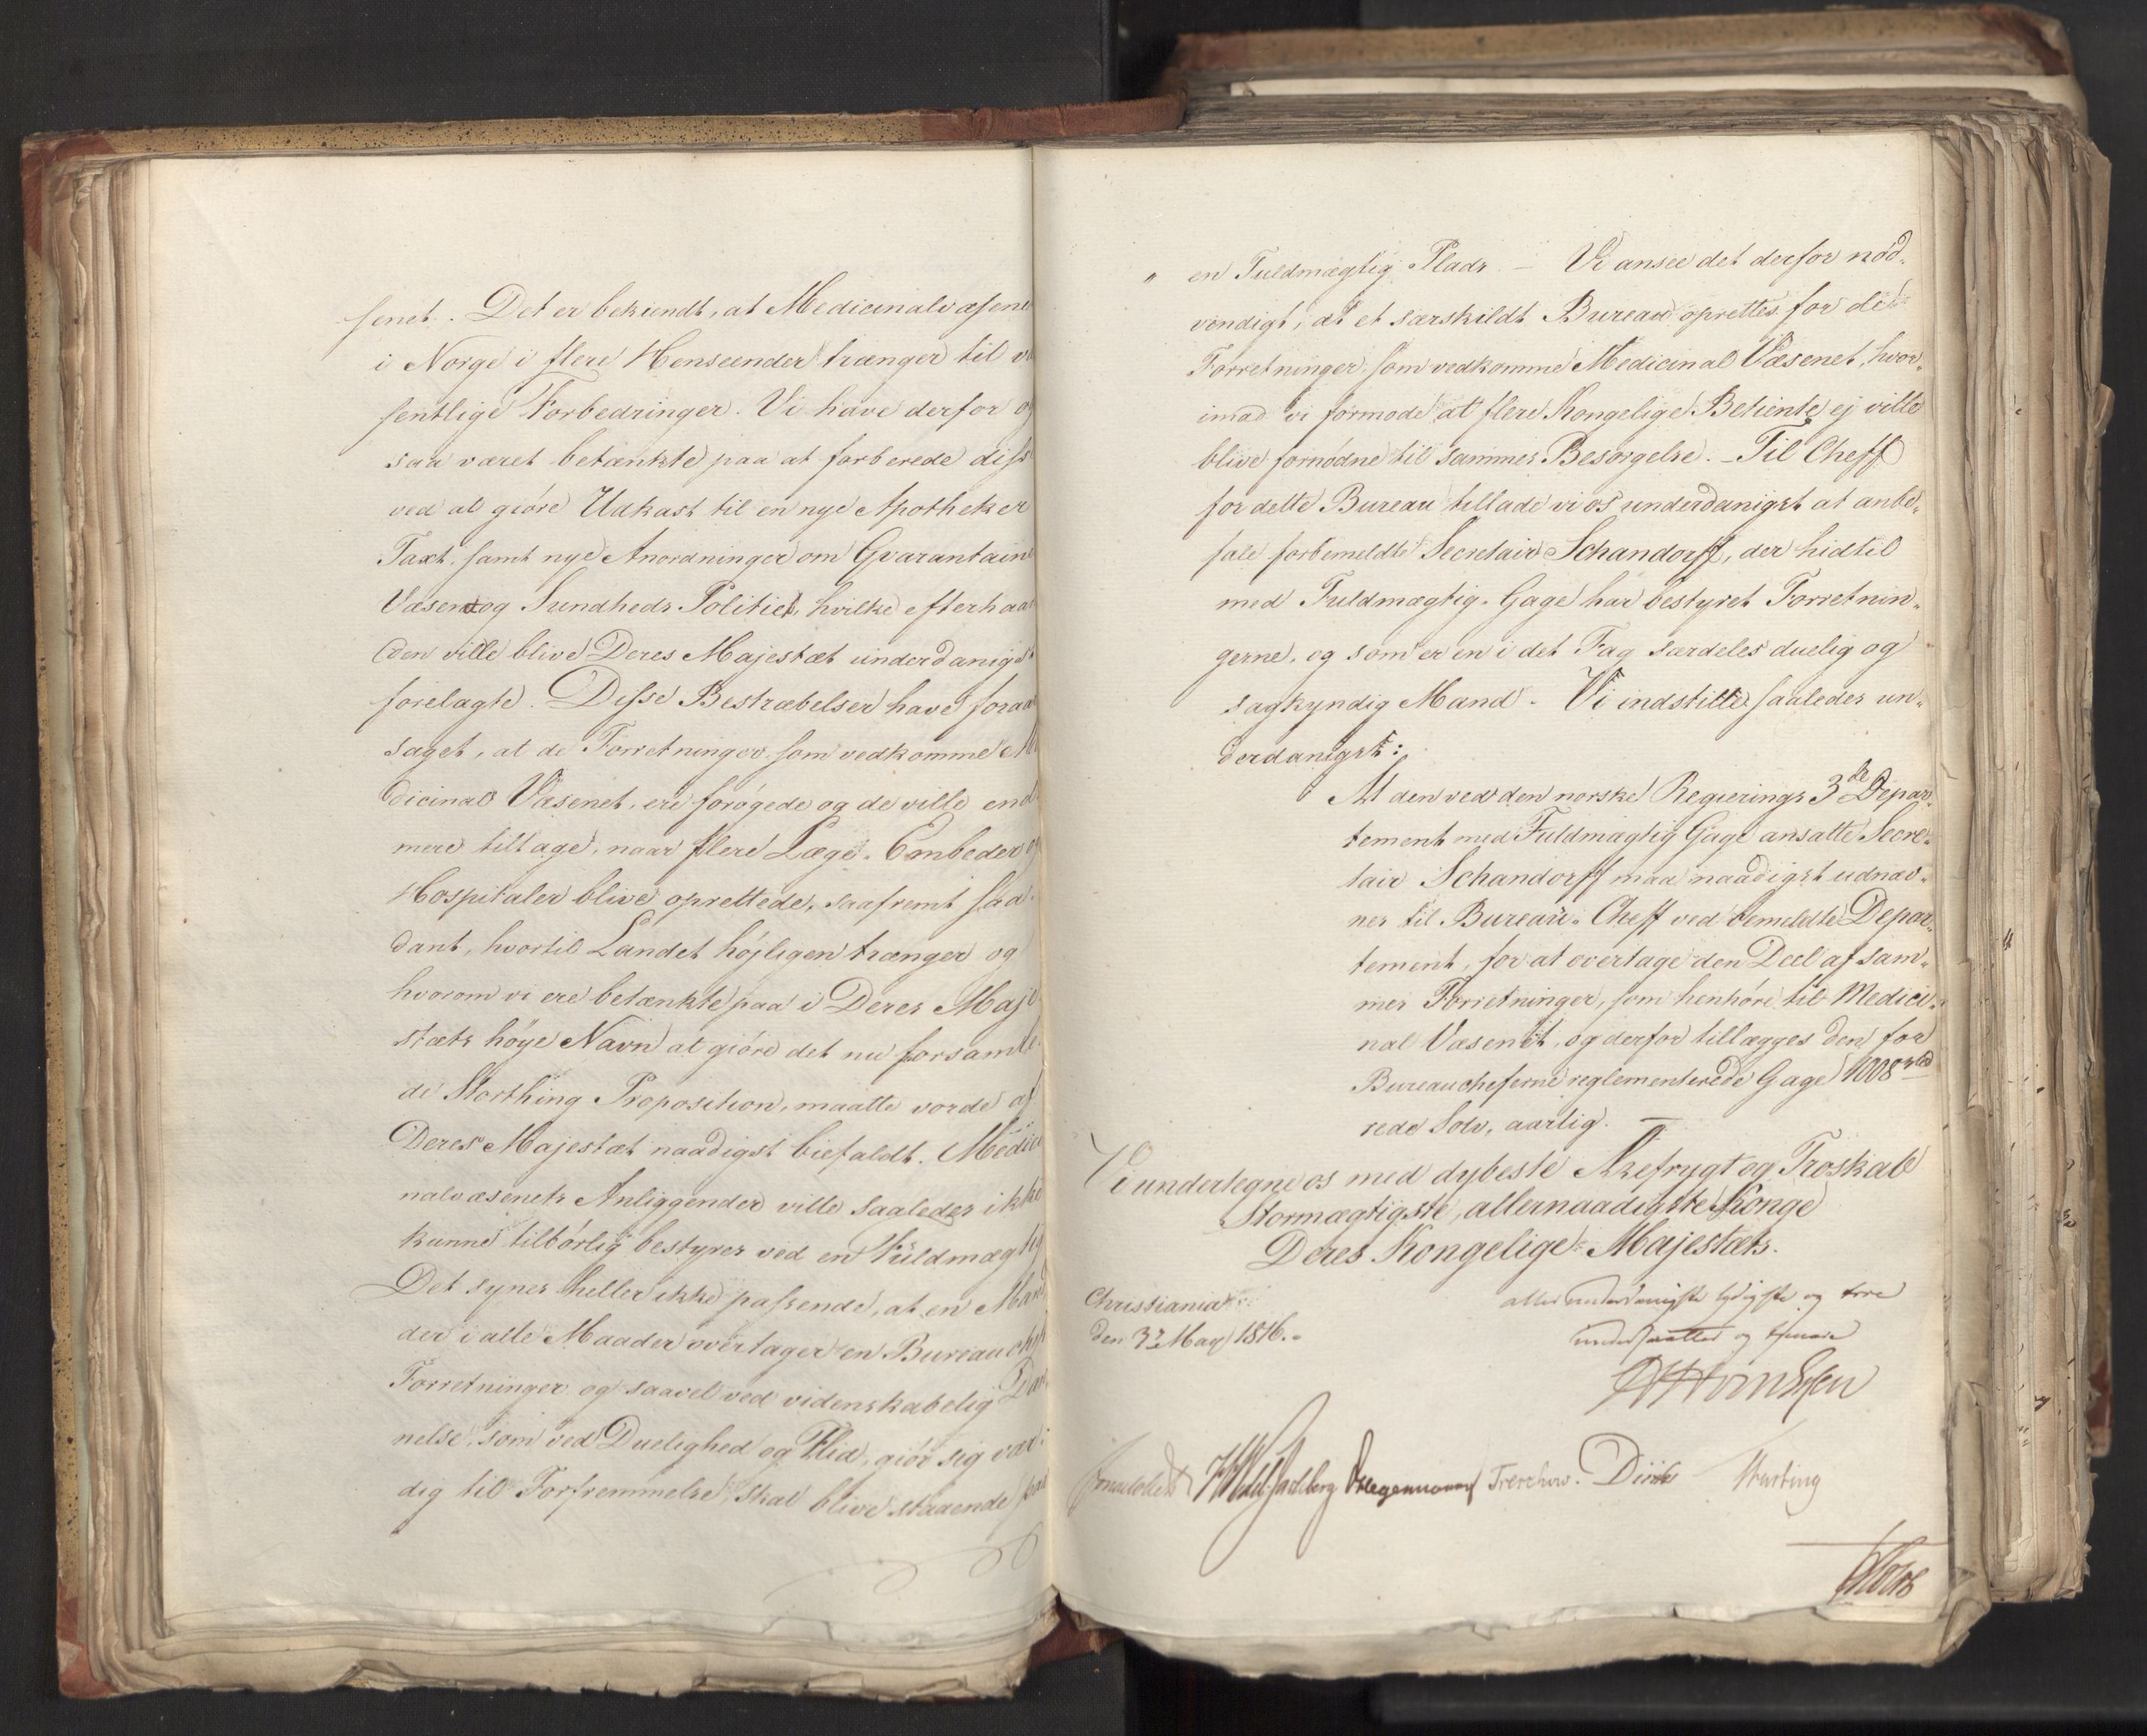 senet. Det er bekiendt, at Medicinalvæsene
i Norge i flere Henseender trænger til v
sentlige Forbedringer. Vi have derfor og
saa været betænkte paa at forberede disse
ved at giøre Udkast til en nye Apotheker
Taxt, samt nye Anordninger om Qvarantaine
Væsen og Sundheds Politiet, hvilke efterhaan
den ville blive Deres Majestæt underdanigst
forelagte. Disse Bestræbelser have foraar
saget, at de Forretninger som vedkomme Me
dicinal Væsenet, ere forøgede og de ville end
mere tiltage, naar flere Læge-Embeder og
Hospitaler blive oprettede, saafremt saa-
dant, hvortil Landet højligen trænger og
hvorom vi ere betænkte paa i Deres Maje
stæts høye Navn at giøre det nu forsamle
de Storthing Proposition, maatte vorde af
Deres Majestæt naadigst biefaldt. Medici
nalvæsenets Anliggender ville saaledes ikke
kunne tilbørlig bestyres ved en Fuldmægtig
Det synes heller ikke passende, at en Mand
der i alle Maader overtager en Bureauchefs
Forretninger og saavel ved videnskabelig Dan
nelse, som ved Duelighed og Flid, giør sig vær-
dig til Forfremmelse, skal blive staaende paa
en Fuldmægtig Plads. – Vi ansee det derfor nød-
vendigt, at et særskildt Bureau oprettes for de
Forretninger som vedkomme Medicinal Væsenet, hvor-
imod vi formode at flere Kongelige Betiente ej ville
blive fornødne til sammes Besørgelse. – Til Cheff
for dette Bureau tillade vi os underdanigst at anbe-
fale forbemeldte Secretair Schandorff, der hidtil
med Fuldmægtig-Gage har bestyret Forretnin-
gerne, og som er en i det Fag særdeles duelig og
sagkyndig Mand. Vi indstille saaledes un-
derdanigst:
At den ved den norske Regierings 3de Depar-
tement med Fuldmægtig Gage ansatte Secre-
tair Schandorff maa naadigst udnæv-
nes til Bureau-Cheff ved bemeldte Depar-
tement, for at overtage den Deel af sam-
mes Forretninger, som henhøre til Medici-
nal Væsenet, og derfor tillægges den for
Bureaucheferne reglementerede Gage 1008 rbd
rede Sølv, aarlig. –
Vi undertegne os med dybeste Ærefrygt og Troskab
Stormægtigste, allernaadigste Konge
Deres Kongelige Majestæts.
Christiania
den 3die May 1816.
allerunderdanigste lydigste og troe
undersaatter og tjenere
Wedel Jarlsberg Hegermann Treschow. Diriks